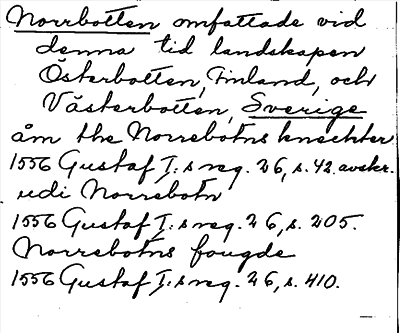 Norrbotten omfattade vid
denna tid landskapen
Österbotten, Finland, och
Västerbotten, Sverige
åm the Norrebotns knechter
1556 Gustaf I:s reg. 26, s. 42. avskr.
udi Norrebotn
1556 Gustaf I:s reg. 26, s. 205.
Norrebotns fougde
1556 Gustaf I:s reg. 26, s. 410.